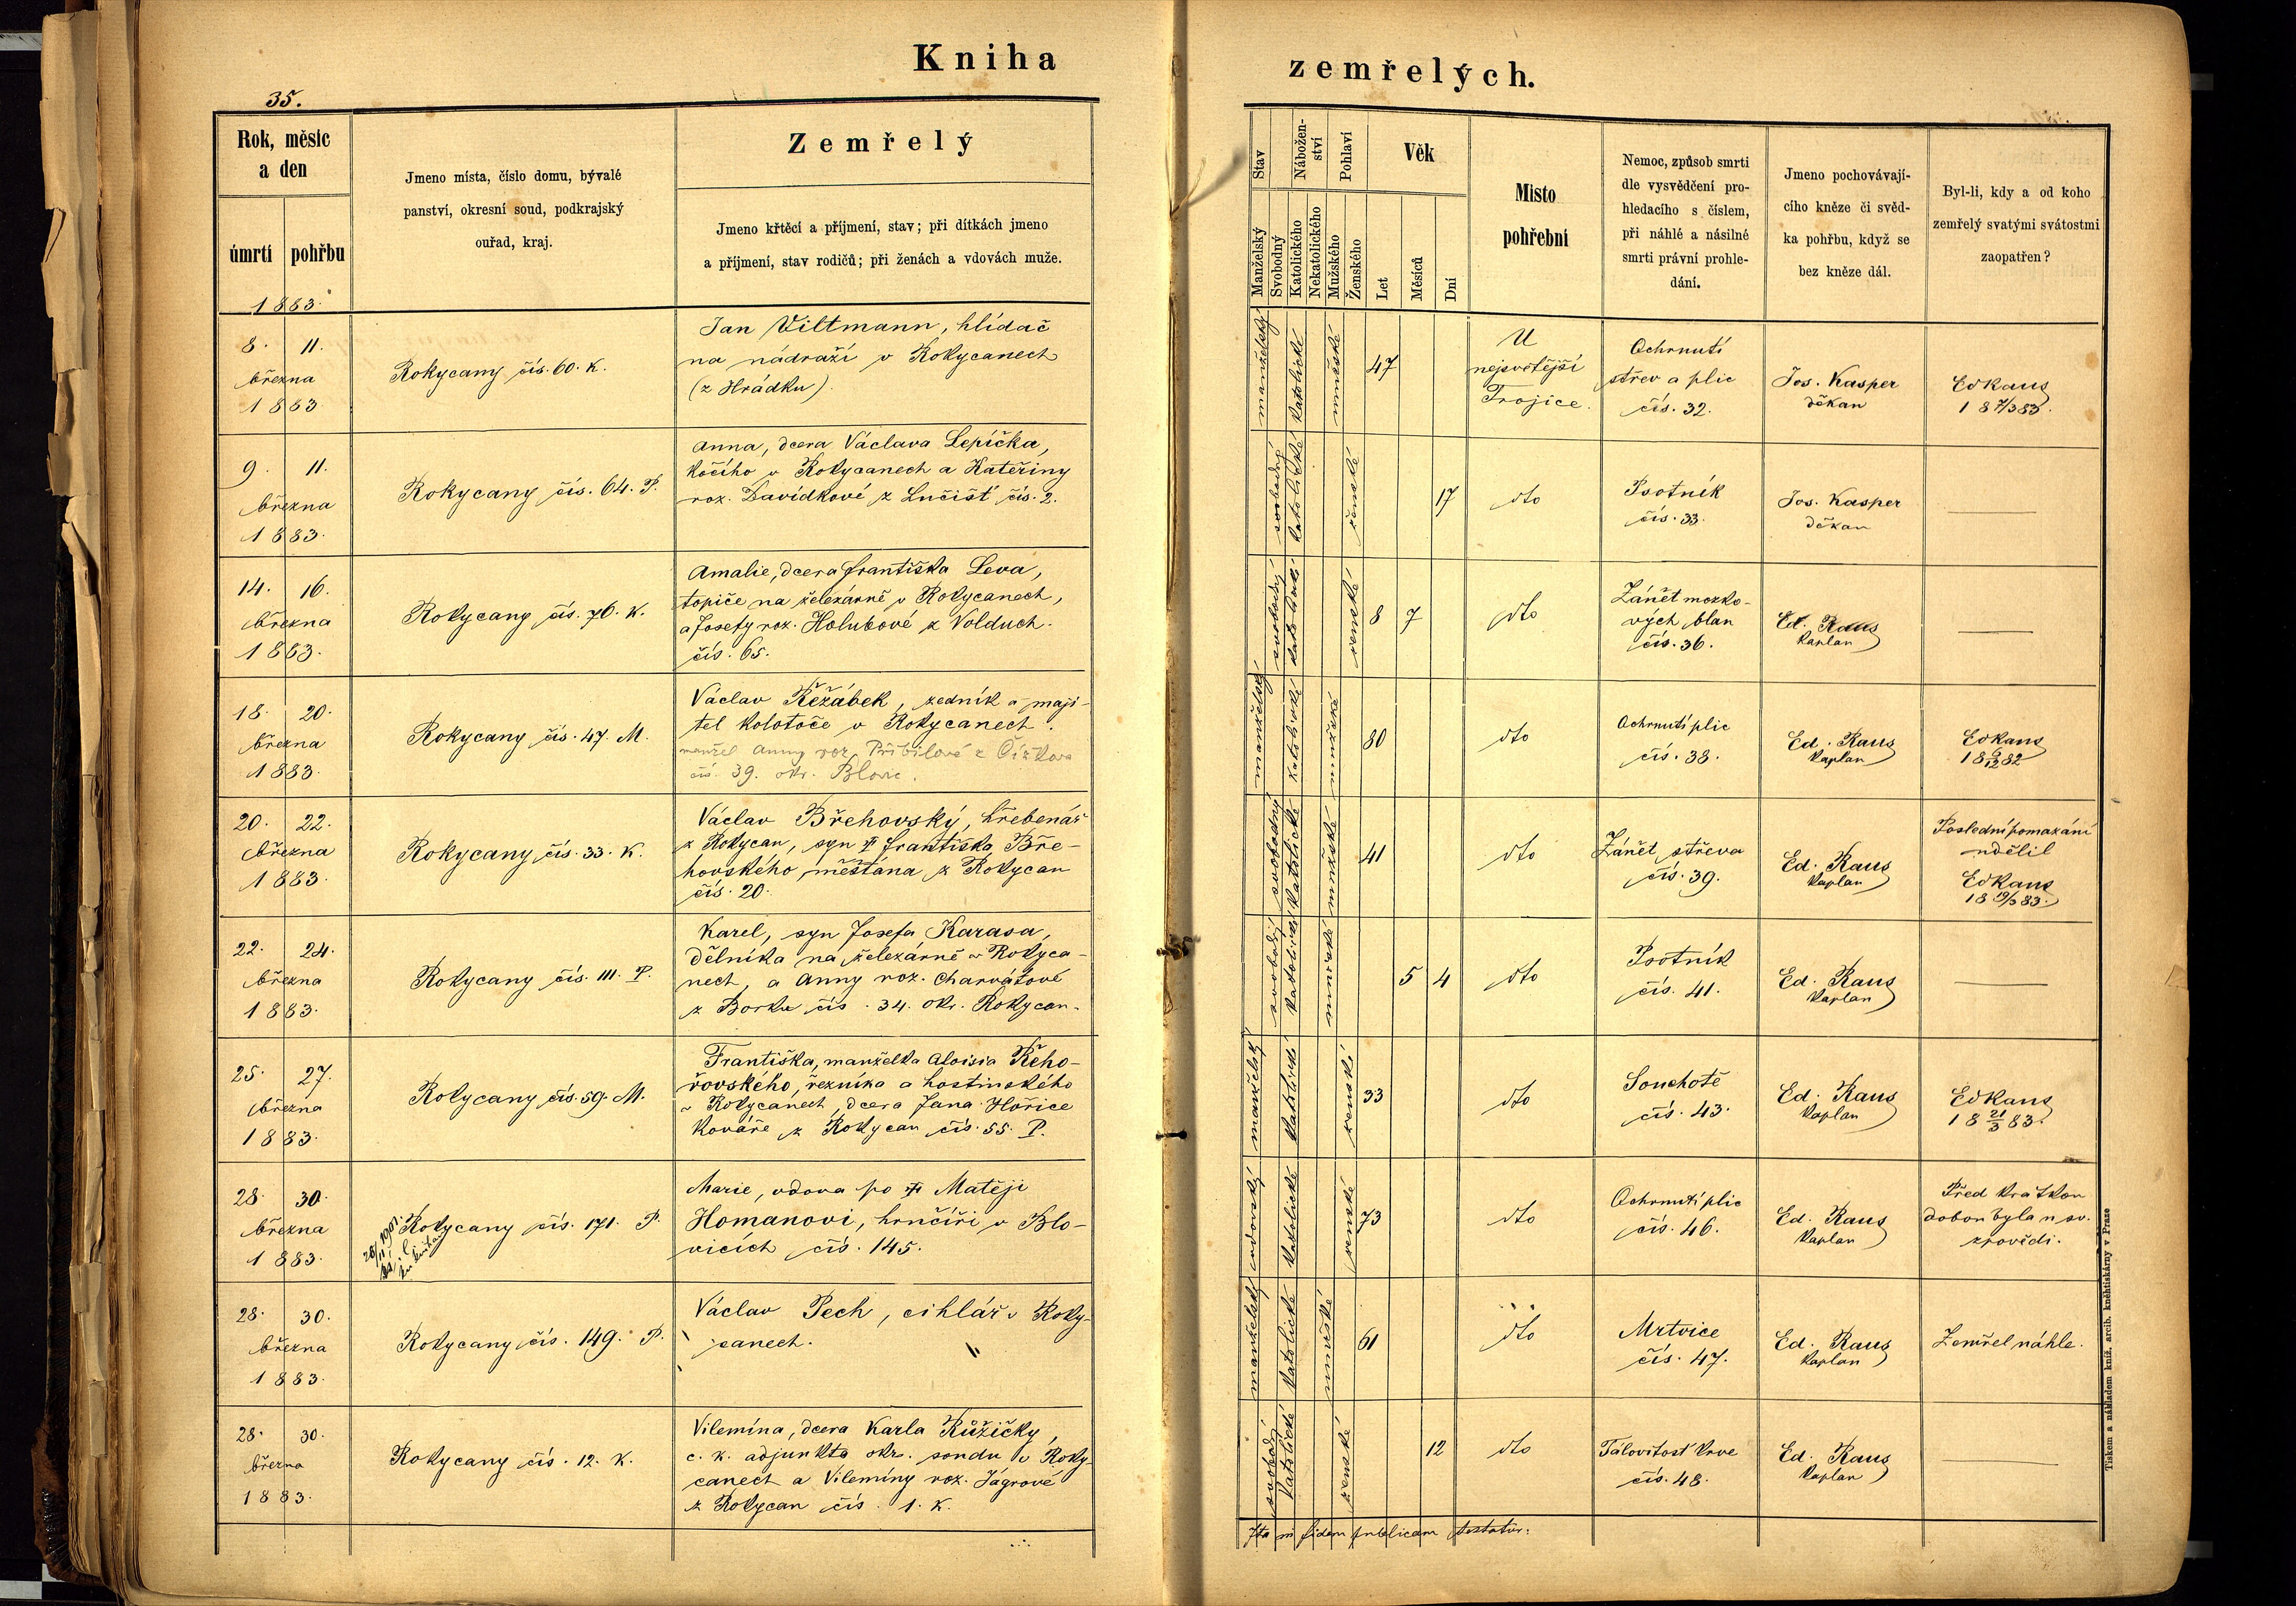 Kniha zemřelých.
35.
Rok, měsíc
a den
úmrtí
pohřbu
1883.
Jmeno místa, číslo domu, bývalé
panství, okresní soud, podkrajský
ouřad, kraj.
Zemřelý
Jmeno křtěcí a příjmení, stav; při dítkách jmeno
a příjmení, stav rodičů; při ženách a vdovách muže.
Stav
Manželský
Svobodný
Nábožen-
ství
Katolického
Nekatolického
Pohlaví
Mužského
Ženského
Věk
Let
Měsíců
Dní
Místo
pohřební
Nemoc, způsob smrti
dle vysvědčení pro-
hledacího s číslem,
při náhlé a násilné
smrti právní prohle-
dání.
Jmeno pochovávají-
cího kněze či svěd-
ka pohřbu, když se
bez kněze dál.
Byl-li, kdy a od koho
zemřelý svatými svátostmi
zaopatřen?
8. 11.
března
1883
Rokycany čís. 60. K.
Jan Viltmann, hlídač
na nádraží v Rokycanech
(z Hrádku).
manželský
katolické
mužské
47
U
nejsvětější
Trojice.
Ochrnutí
střev a plic
čís. 32.
Jos. Kasper
děkan
EdRaus
18 7/3 83.
9. 11.
března
1883.
Rokycany čís. 64. P.
Anna, dcera Václava Lepíčka,
kočího v Rokycanech a Kateřiny
roz. Davídkové z Lučišť čís. 2.
svobodný
katolické
ženské
17
dto
Psotník
čís. 33.
Jos. Kasper
děkan
14. 16.
března
1883.
Rokycany čís. 76. K.
Amalie, dcera Františka Leva,
topiče na železárně v Rokycanech,
a Josefy roz. Holubové z Volduch
čís. 65.
svobodný
katolické
ženské
8 7
dto
Zánět mozko-
vých blan
čís. 36.
Ed. Raus
kaplan
18. 20.
března
1883.
Rokycany čís. 47. M.
Václav Řežábek, zedník a maji-
tel kolotoče v Rokycanech.
manžel Anny roz. Přibilové z Čížkova
čís. 39. okr. Blovic.
manželský
katolické
mužské
80
dto
Ochrnutí plic
čís. 38.
Ed. Raus
kaplan
EdRaus
18 6/12 82
20. 22.
března
1883.
Rokycany čís. 33. K.
Václav Břehovský, hřebenář
z Rokycan, syn † Františka Bře-
hovského, měštána z Rokycan
čís. 20.
svobodný
katolické
mužské
41
dto
Zánět střeva
čís. 39.
Ed. Raus
kaplan
Poslední pomazání
udělil
EdRaus
18 19/3 83.
22. 24.
března
1883.
Rokycany čís. 111. P.
Karel, syn Josefa Karasa,
dělníka na železárně v Rokyca-
nech, a Anny roz. Charvátové
z Borku čís. 34. okr. Rokycan.
svobodný
katolické
mužské
5 4
dto
Psotník
čís. 41.
Ed. Raus
kaplan
25. 27.
března
1883.
Rokycany čís. 59. M.
Františka, manželka Aloisia Řeho-
řovského, řezníka a hostinského
v Rokycanech, dcera Jana Hořice
kováře z Rokycan čís. 55. P.
manželský
katolické
ženské
33
dto
Souchotě
čís. 43.
Ed. Raus
kaplan
EdRaus
18 21/3 83.
28. 30.
března
1883.
Rokycany čís. 171. P.
Marie, vdova po † Matěji
Homanovi, hrnčíři v Blo-
vicích čís. 145.
vdovský
katolické
ženské
73
dto
Ochrnutí plic
čís. 46.
Ed. Raus
kaplan
Před krátkou
dobou byla u sv.
zpovědi.
28. 30.
března
1883.
Rokycany čís. 149. P.
Václav Pech, cihlář v Roky-
canech.
manželský
katolické
mužské
61
dto
Mrtvice
čís. 47.
Ed. Raus
kaplan
Zemřel náhle.
28. 30.
března
1883.
Rokycany čís. 12. K.
Vilemína, dcera Karla Růžičky,
c. k. adjunkta okr. soudu v Roky-
canech a Vilemíny roz. Jágrové
z Rokycan čís. 1. K.
svobodný
katolické
ženské
12
dto
Tálovitost krve
čís. 48.
Ed. Raus
kaplan
Ita in fidem publicam testatur:
Tiskem a nákladem kníž. arcib. kněhtiskárny v Praze